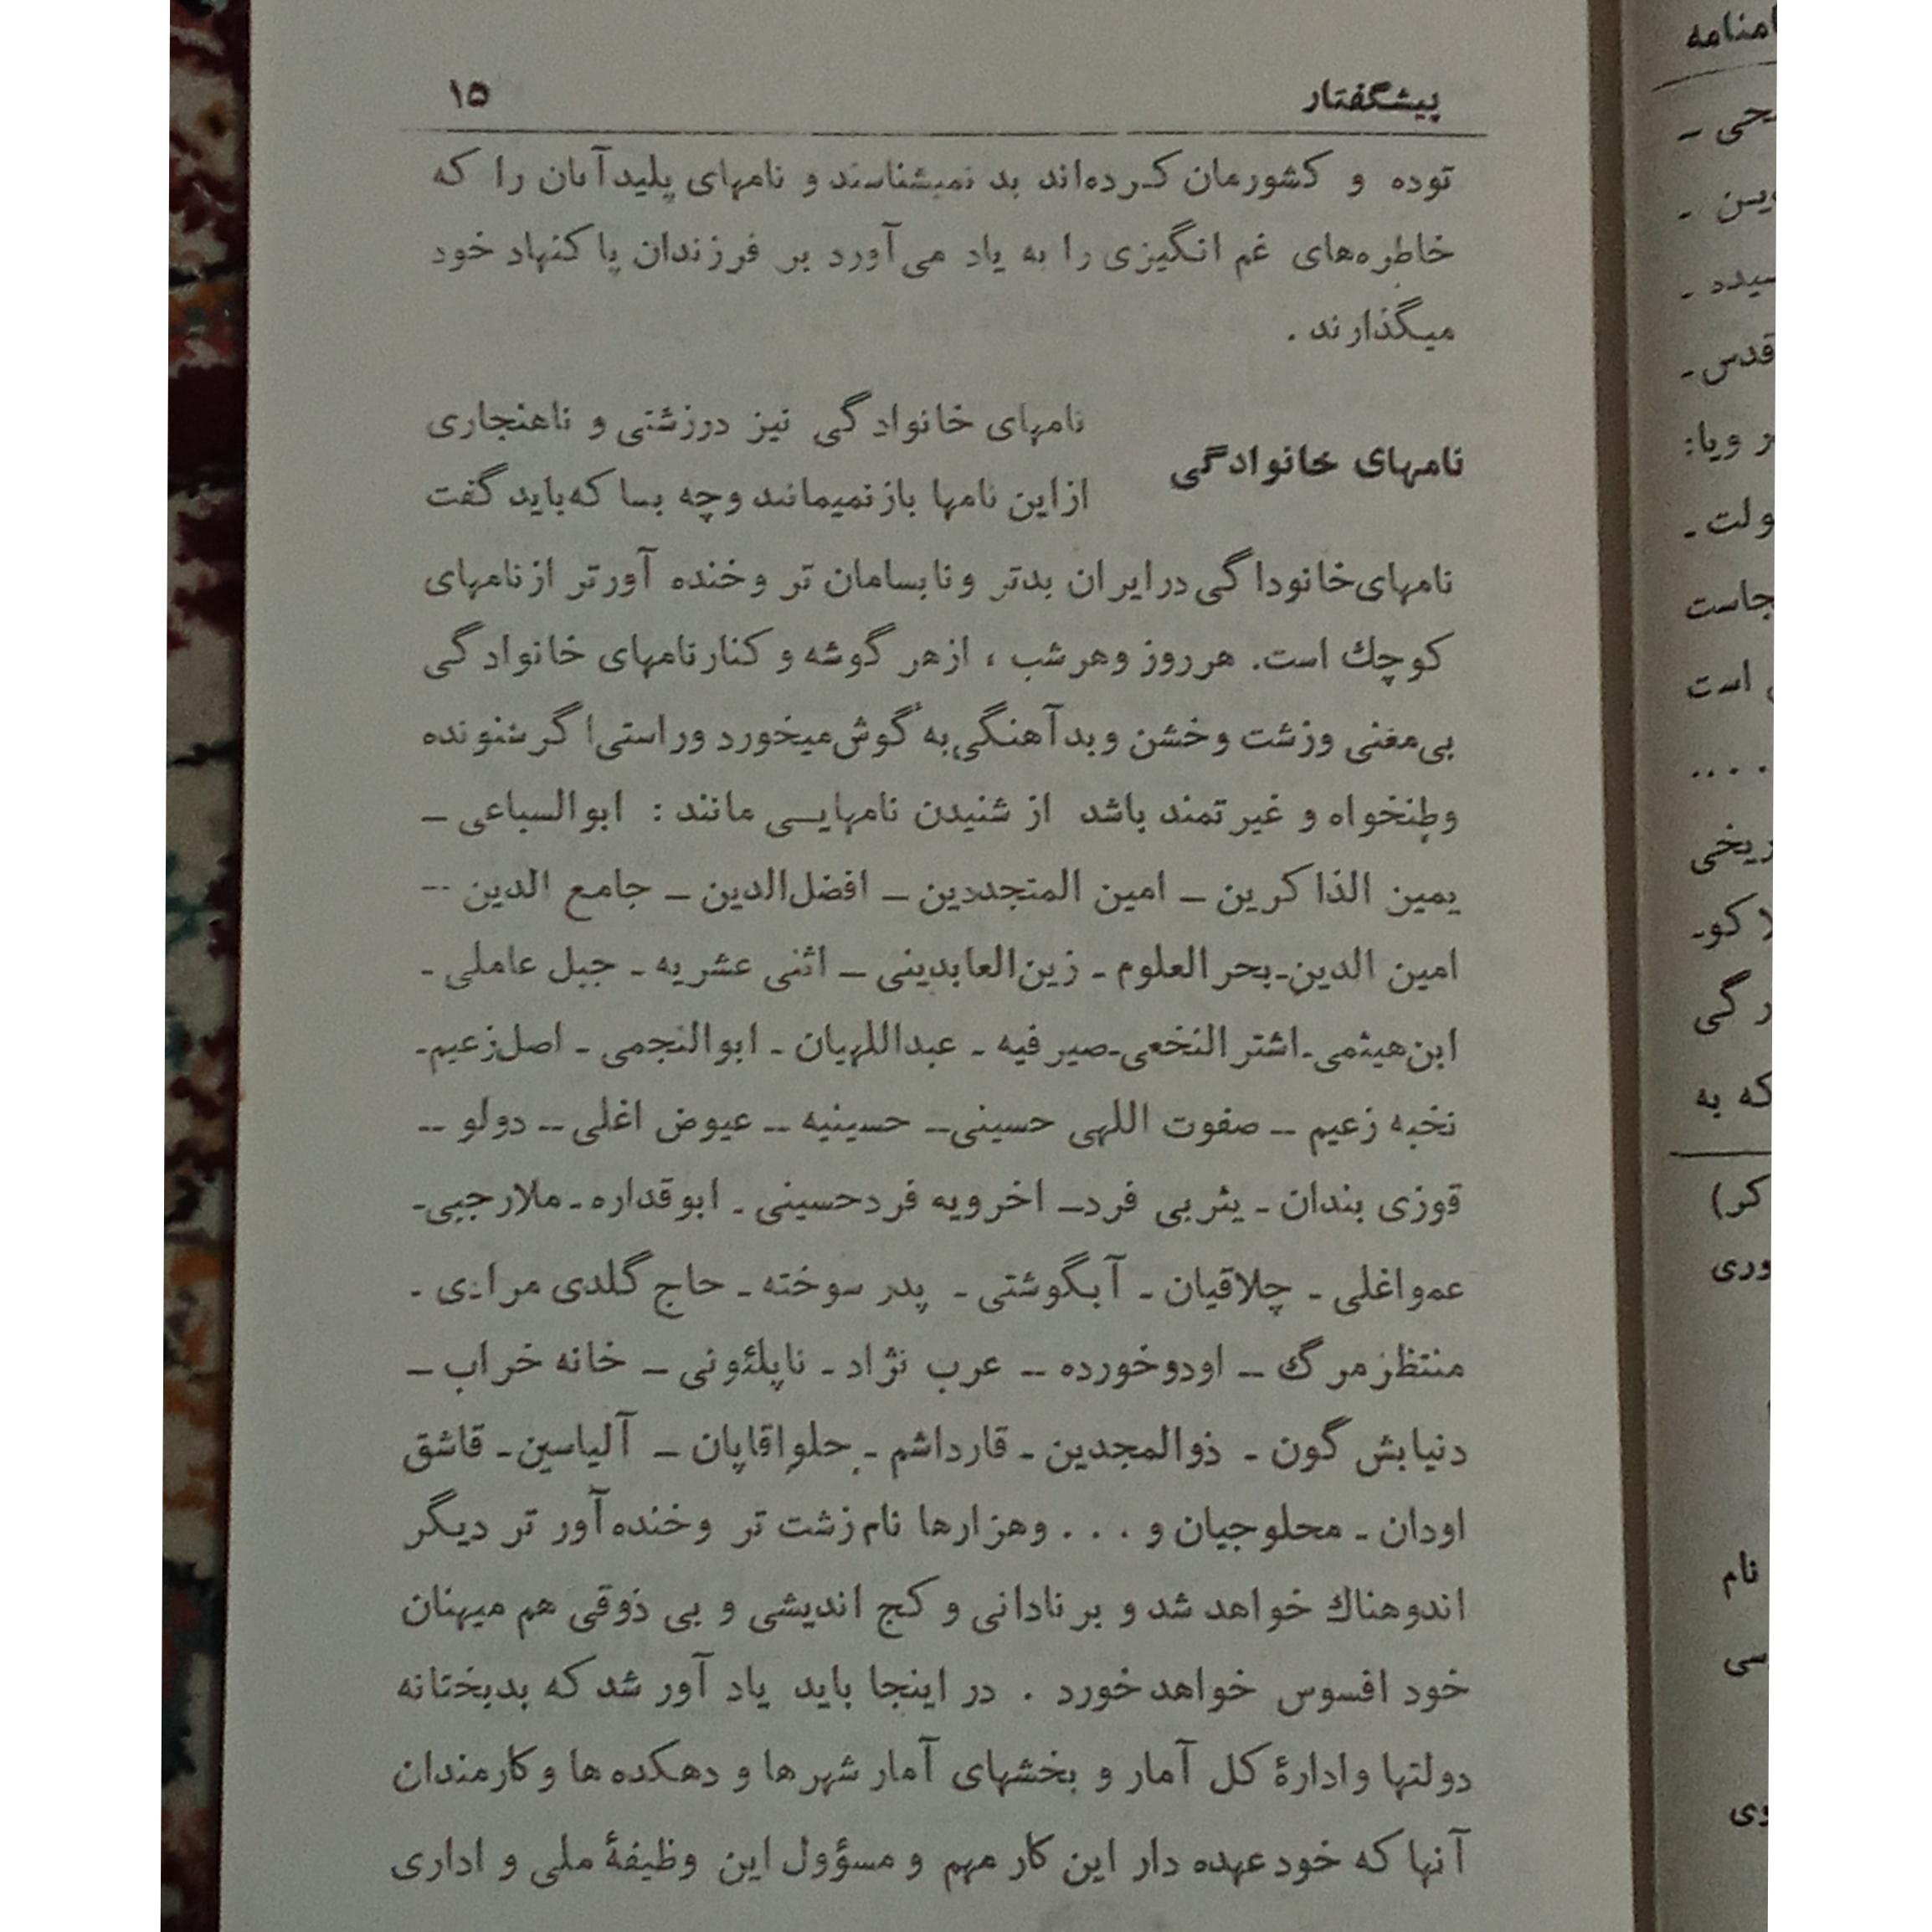 پیشگفتار ۱۵
توده و کشورمان کرده‌اند بد نمیشناسند و نامهای پلیدآنان را که
خاطره‌های غم انگیزی را به یاد می‌آورد بر فرزندان پاکنهاد خود
میگذارند .
نامهای خانوادگی نیز درزشتی و ناهنجاری
نامهای خانوادگی
ازاین نامها بازنمیمانند وچه بسا که‌باید گفت
نامهای‌خانوداگی درایران بدتر ونابسامان تر وخنده آورتر ازنامهای
کوچك است. هرروز وهرشب ، ازهر گوشه و کنارنامهای خانوادگی
بی‌معنی وزشت وخشن وبدآهنگی‌به گوش‌میخورد وراستی‌اگرشنونده
وطنخواه و غیرتمند باشد از شنیدن نامهایی مانند : ابوالسباعی –
یمین الذاکرین – امین المتجددین – افضل‌الدین – جامع الدین –
امین الدین-بحرالعلوم - زین‌العابدینی – اثنی عشریه - جبل عاملی -
ابن‌هیثمی-اشترالنخعی-صیرفیه - عبداللهیان - ابوالنجمی - اصل‌زعیم-
نخبه زعیم – صفوت اللهی حسینی– حسینیه – عیوض اغلی – دولو –
قوزی بندان - یثربی فرد– اخرویه فردحسینی - ابوقداره - ملارجبی-
عمواغلی - چلاقیان - آبگوشتی - پدر سوخته - حاج گلدی مرادی -
منتظرمرگ – اودوخورده – عرب نژاد - ناپلئونی – خانه خراب –
دنیابش گون - ذوالمجدین - قارداشم - حلواقاپان – آلیاسین - قاشق
اودان - محلوجیان و . . . وهزارها نام‌زشت تر وخنده‌آور تر دیگر
اندوهناك خواهد شد و برنادانی و کج اندیشی و بی ذوقی هم میهنان
خود افسوس خواهدخورد . در اینجا باید یاد آور شدکه بدبختانه
دولتها وادارهٔ کل آمار و بخشهای آمار شهرها و دهکده ها وکارمندان
آنها که خودعهده دار این کار مهم و مسؤول این وظیفهٔ ملی و اداری